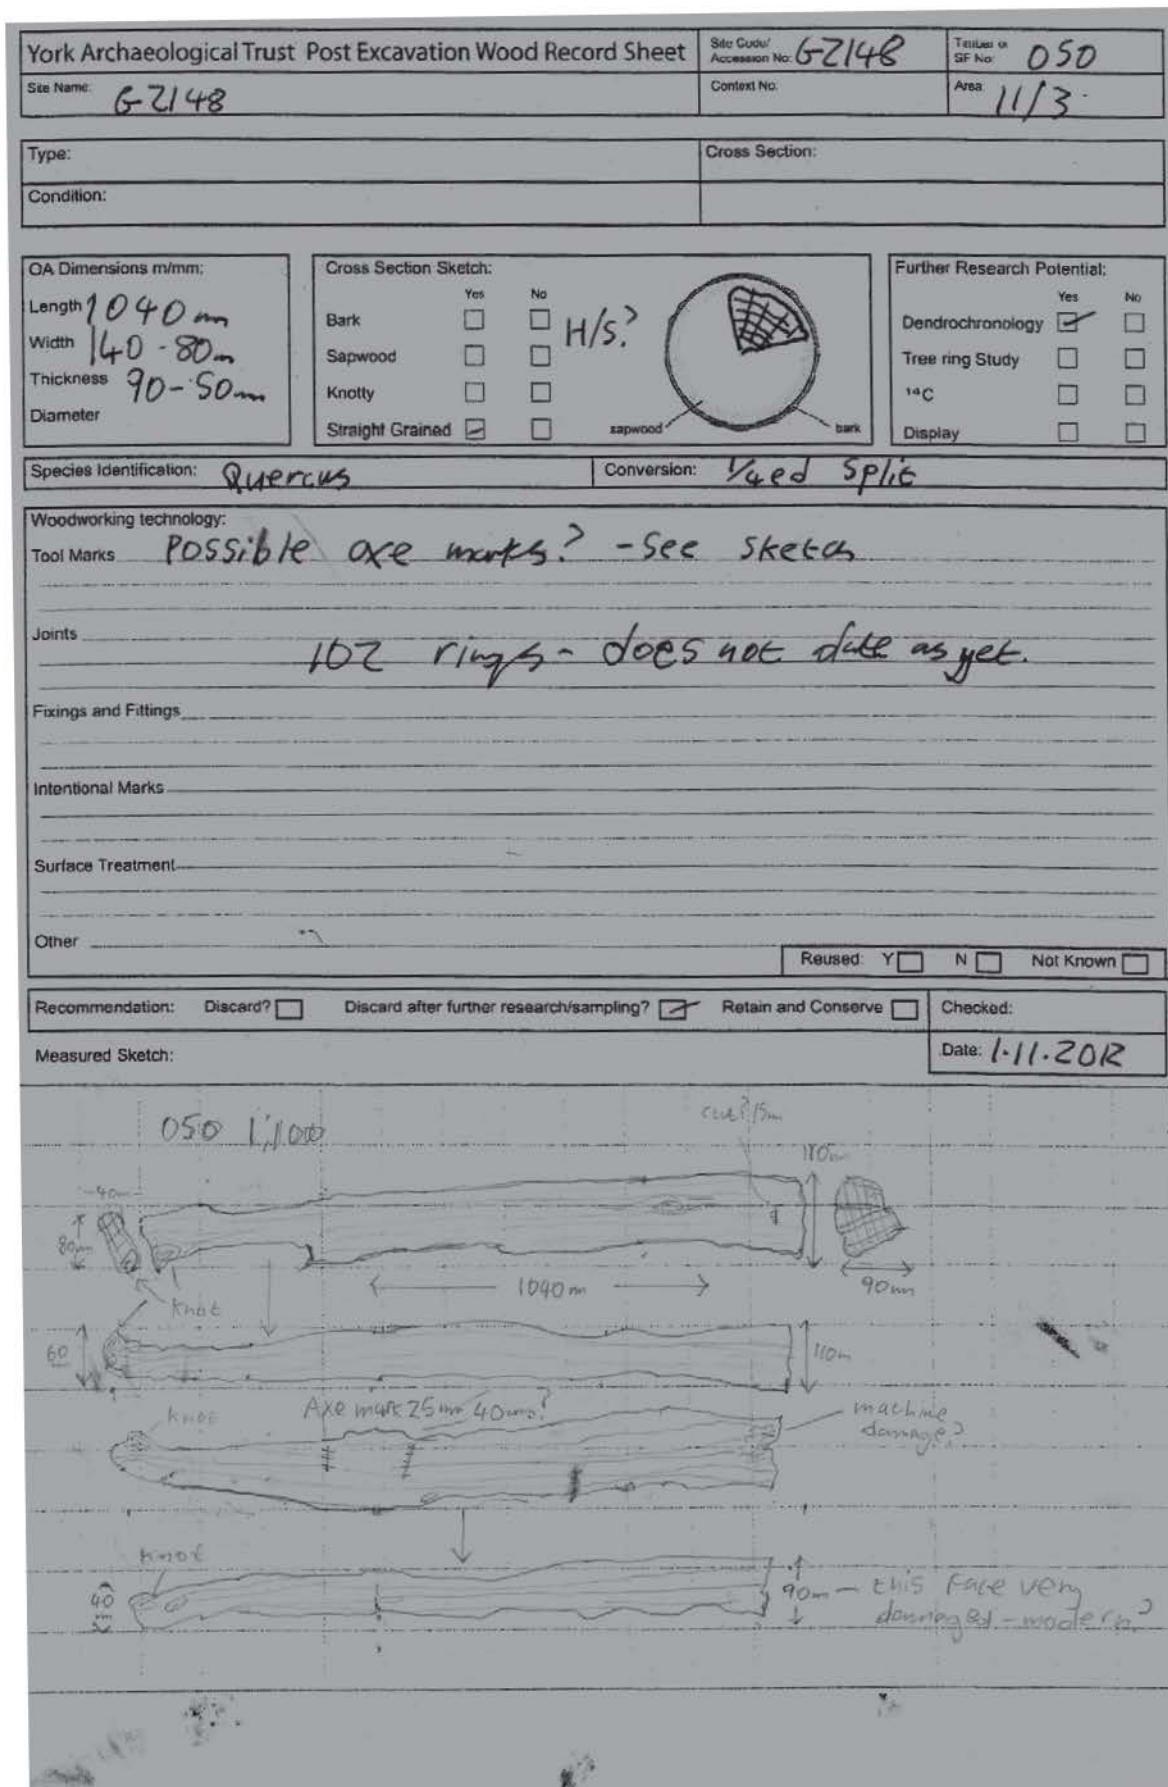 York Archaeological Trust Post Excavation Wood Record Sheet
Site Code/ Accession No: GZ148
Timber or SF No: 050
Site Name: GZ148
Context No:
Area: 11/3
Type:
Cross Section:
Condition:
OA Dimensions m/mm:
Length 1040mm
Width 140-80m
Thickness 90-50mm
Diameter
Cross Section Sketch:
Yes No
Bark
Sapwood
Knotty
Straight Grained
H/S?
sapwood
bark
Further Research Potential:
Yes No
Dendrochronology
Tree ring Study
14C
Display
Species Identification: Quercus
Conversion: 1/4ed Split
Woodworking technology:
Tool Marks Possible axe marks? - See sketch
Joints
102 rings - does not date as yet.
Fixings and Fittings
Intentional Marks
Surface Treatment
Other
Reused: Y N Not Known
Recommendation: Discard? Discard after further research/sampling? Retain and Conserve
Checked:
Measured Sketch:
Date: 1.11.2012
050 1:100
cut? 15m
110m
40m
80mm
1040m
90mm
Knot
60
110m
Knot
Axe mark 25mm 40mm?
machine
damage?
Knot
40
mm
90m - this face very
damaged - modern?